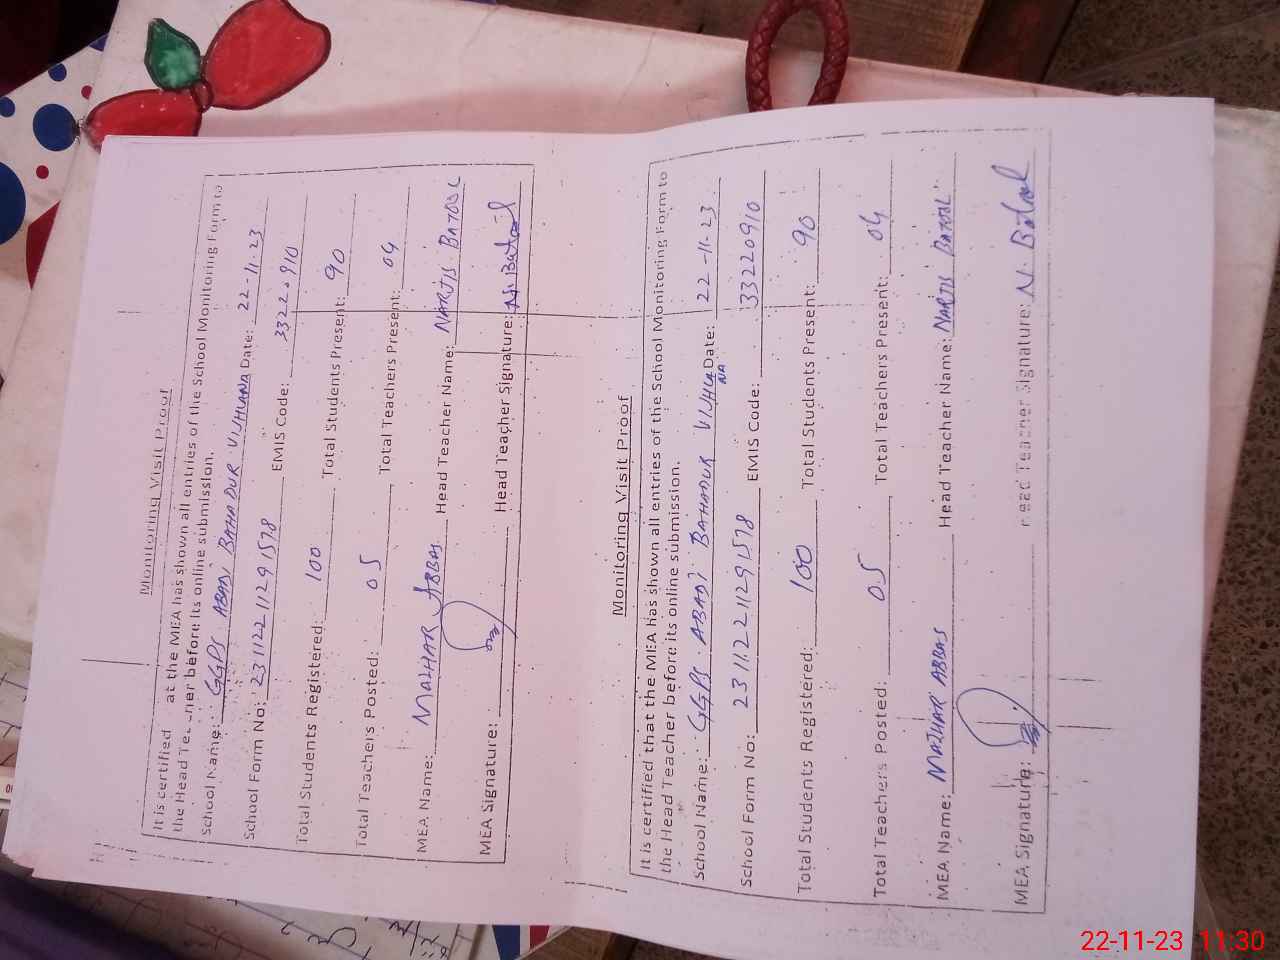 Monitoring Visit Proof
It is certified at the MEA has shown all entries of the School Monitoring Form to
the Head Teacher before its online submission.
School Name: GGPS ABADI BAHADUR VIJHLANA Date: 22-11-23
School Form No: 23112211291578 EMIS Code: 33220910
Total Students Registered: 100 Total Students Present: 90
Total Teachers Posted: 05 Total Teachers Present: 04
MEA Name: MAZHAR ABBAS Head Teacher Name: NARJIS BATOOL
MEA Signature: Head Teacher Signature: N. Batool
Monitoring Visit Proof
It is certified that the MEA has shown all entries of the School Monitoring Form to
the Head Teacher before its online submission.
School Name: GGPS ABADI BAHADUR VIJHLANA Date: 22-11-23
School Form No: 23112211291578 EMIS Code: 33220910
Total Students Registered: 100 Total Students Present: 90
Total Teachers Posted: 05 Total Teachers Present: 04
MEA Name: MAZHAR ABBAS Head Teacher Name: NARJIS BATOOL
MEA Signature: Head Teacher Signature: N. Batool
22-11-23 11:30